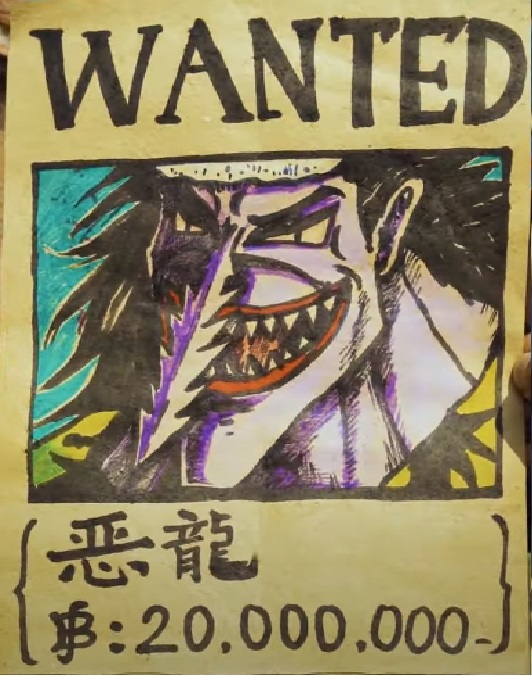 WANTED
恶龍
฿:20.000.000-